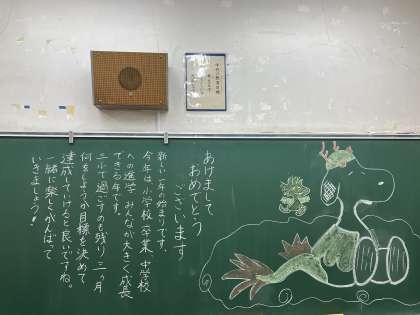 あけまして
おめでとう
ございます
新しい年の始まりです。
今年は小学校卒業、中学校
への進学 みんなが大きく成長
できる年です。
ニルで過ごすのも残り三ヶ月
何をしようか目標を決めて
達成していけると良いですね。
一緒に楽しくがんばって
いきましょう!